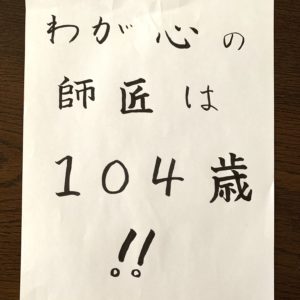 わが心の
師匠は
104歳
!!